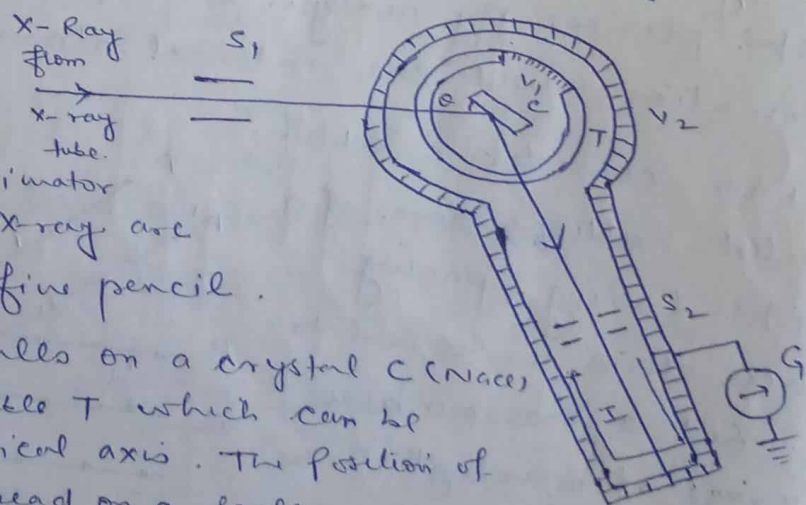 X-Ray
from
S1
X-ray
tube.
θ
V1
C
T
V2
imator
X-ray are
fine pencil.
S2
lls on a crystal C (NaCl)
ble T which can be
G
I
ical axis. The position of
ead on a